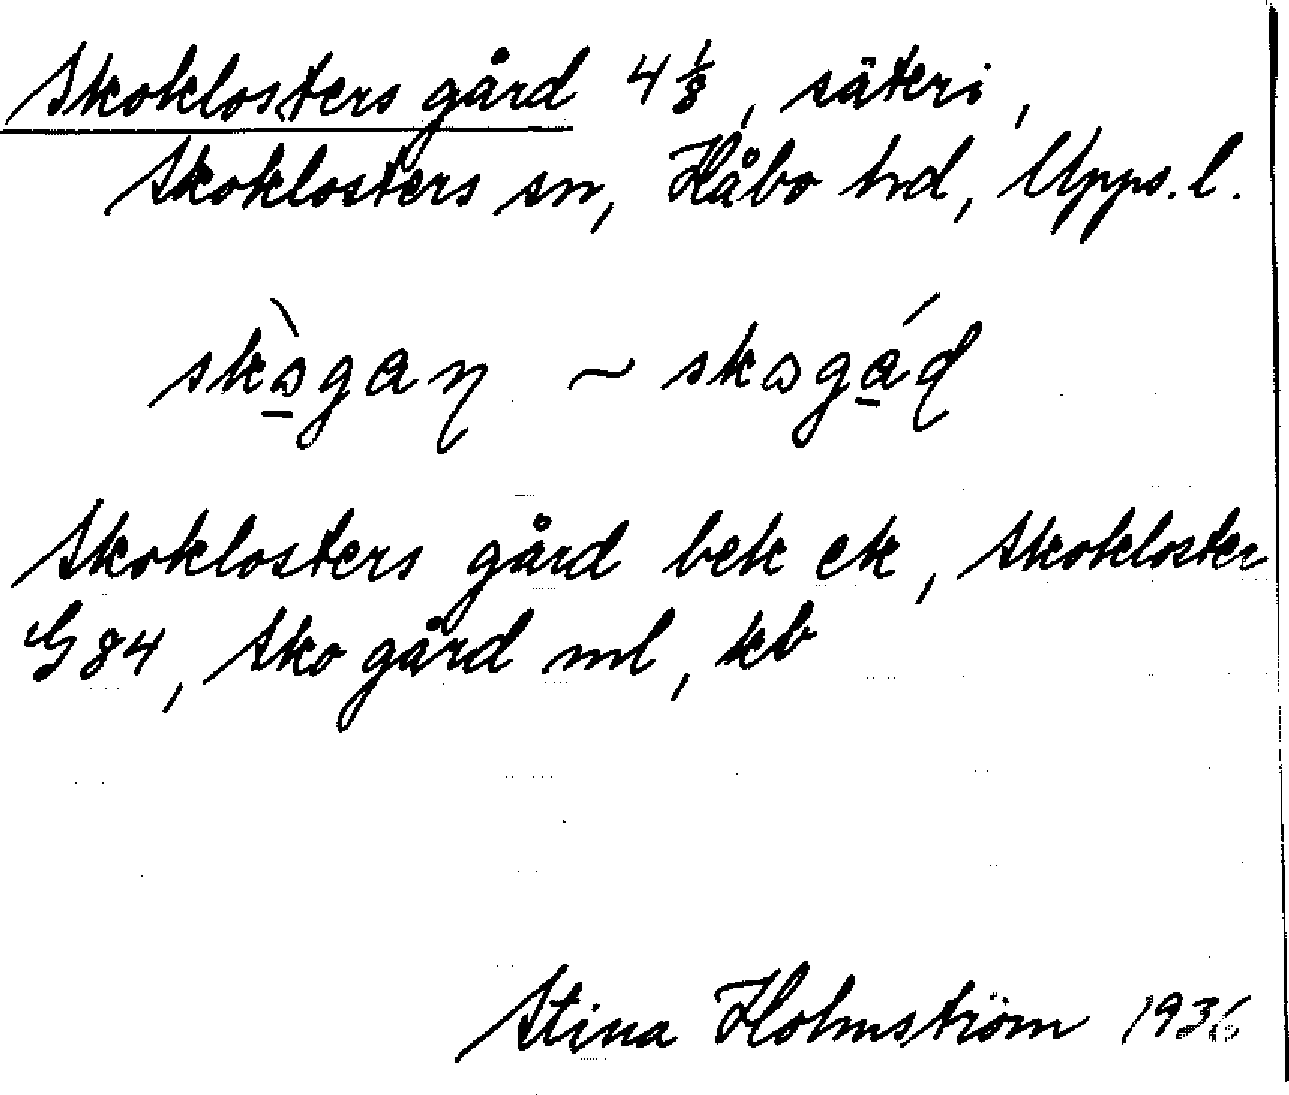 Skoklosters gård 4 1/8, säteri,
Skoklosters sn, Håbo hd, Upps. l.
skògaɳ ~ skogáɖ
Skoklosters gård bek ek, Skokloster
G84, Sko gård ml, kb
Stina Holmström 1936